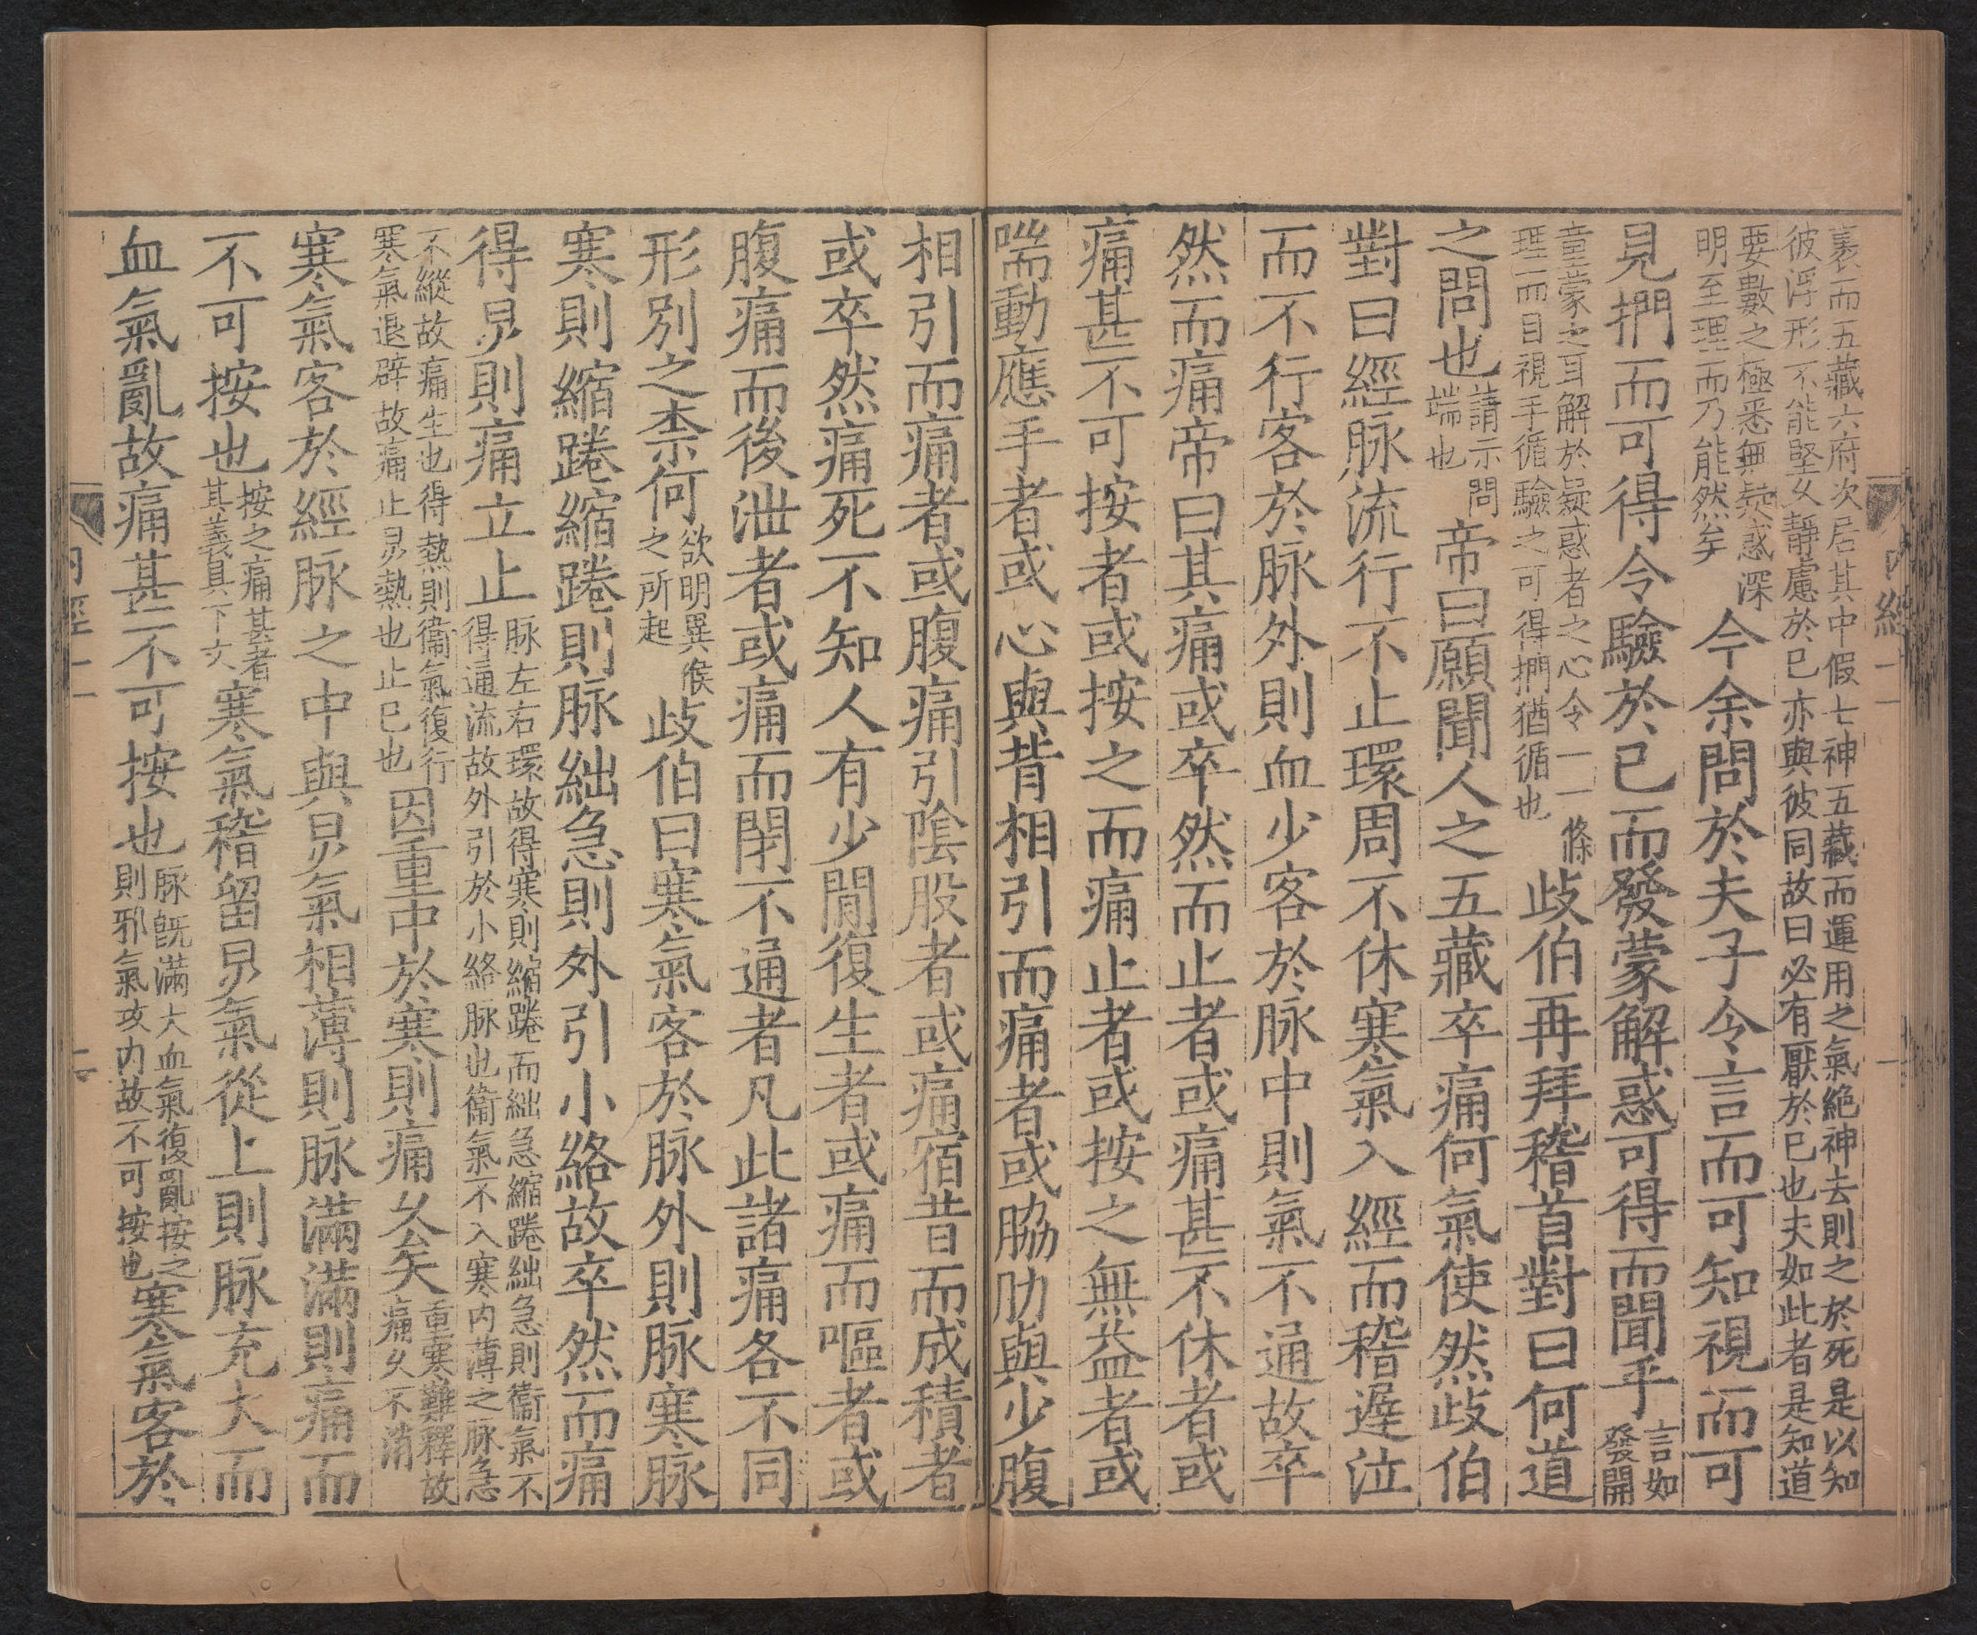 裏而五藏六府次居其中假七神五藏而運用之氣絶神去則之於死是以知
彼浮形不能堅女靜慮於已亦與彼同故曰必有厭於已也夫如此者是知道
要數之極悉無疑惑深
明至理而乃能然矣
今余問於夫子令言而可知視而可
見捫而可得令驗於已而發蒙解惑可得而聞乎
言如
發開
童蒙之耳解於疑惑者之心令一一條
理而目視手循驗之可得捫猶循也
歧伯再拜稽首對曰何道
之問也
請示問
端也
帝曰願聞人之五藏卒痛何氣使然歧伯
對曰經脉流行不止環周不休寒氣入經而稽遲泣
而不行客於脉外則血少客於脉中則氣不通故卒
然而痛帝曰其痛或卒然而止者或痛甚不休者或
痛甚不可按者或按之而痛止者或按之無益者或
喘動應手者或心與背相引而痛者或脇肋與少腹
相引而痛者或腹痛引陰股者或痛宿昔而成積者
或卒然痛死不知人有少間復生者或痛而嘔者或
腹痛而後泄者或痛而閉不通者凡此諸痛各不同
形別之柰何
欲明異候
之所起
歧伯曰寒氣客於脉外則脉寒脉
寒則縮踡縮踡則脉絀急則外引小絡故卒然而痛
得炅則痛立止
脉左右環故得寒則縮踡而絀急縮踡絀急則衞氣不
得通流故外引於小絡脉也衞氣不入寒内薄之脉急
不縱故痛生也得熱則衞氣復行
寒氣退辟故痛止炅熱也止已也
因重中於寒則痛乆矣
重寒難釋故
痛乆不消
寒氣客於經脉之中與炅氣相薄則脉滿滿則痛而
不可按也
按之痛甚者
其義具下文
寒氣稽留炅氣從上則脉充大而
血氣亂故痛甚不可按也
脉既滿大血氣復亂按之
則邪氣攻内故不可按也
寒氣客於
内經十一
二